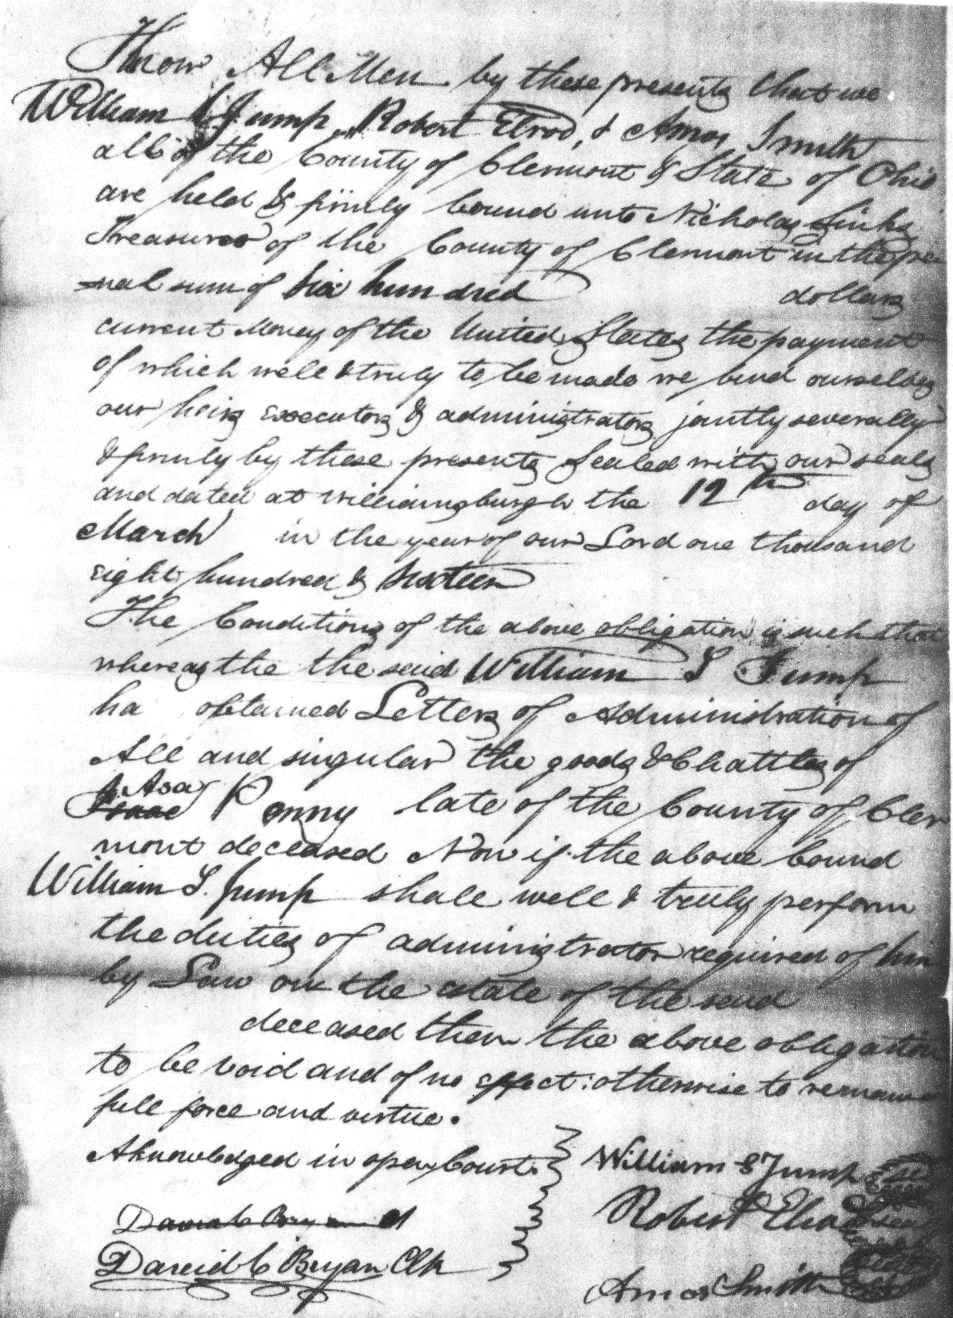 Know All Men by these presents that we
William S Jump Robert Elrod, & Amos Smith
all of the County of Clermont & State of Ohio
are held & firmly bound unto Nicholas Sinks
Treasurer of the County of Clermont in the pe
nal sum of Six hundred dollars
current Money of the United States the payment
of which well & truly to be made we bind ourselves
our heirs executors & administrators jointly severally
& firmly by these presents Sealed with our seals
and dated at Williamsburgh the 12th day of
March in the year of our Lord one thousand
eight hundred & Sixteen
The Conditions of the above obligation is such that
whereas the the said William S Jump
ha obtained Letters of Administration of
All and singular the goods & Chattles of
Asa
Isaac Penny late of the County of Cler
mont deceased Now if the above bound
William S. Jump shall well & truly perform
the duties of administrator required of him
by Law on the estate of the said
deceased then the above obligation
to be void and of no effect: otherwise to remain
full force and virtue.
Aknowledged in open Court
William S Jump
David C Bryan Cl
Robert Elrod
David C Bryan Clk
Amos Smith